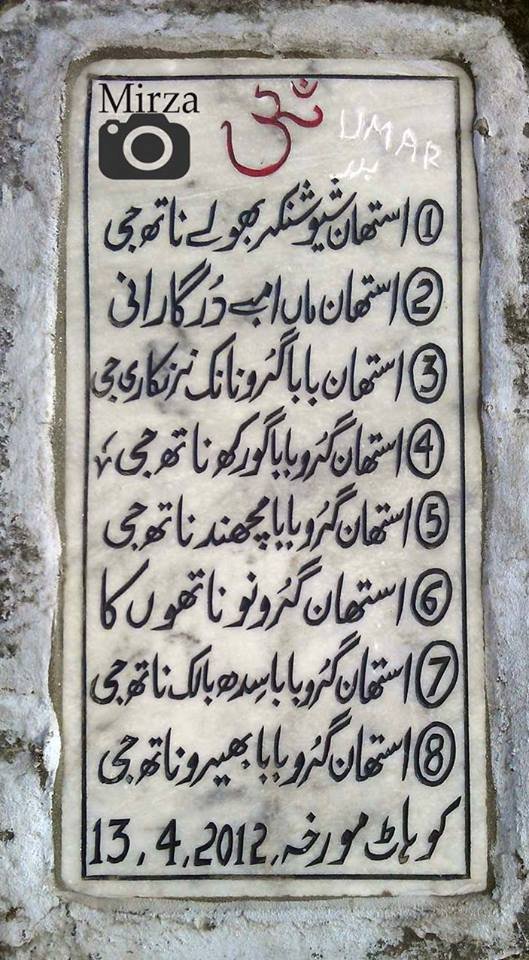 Mirza
ॐ
UMAR
① استھان شیوشنکر بھولے ناتھ جی
② استھان ماں امبے دُرگا رانی
③ استھان بابا گُرو نانک نرنکاری جی
④ استھان گُرو بابا گورکھ ناتھ جی
⑤ استھان گُرو بابا مچھندر ناتھ جی
⑥ استھان گُرو نو ناتھوں کا
⑦ استھان گُرو بابا سِدھ بالک ناتھ جی
⑧ استھان گُرو بابا بھیرو ناتھ جی
کوہاٹ مورخہ 13.4.2012